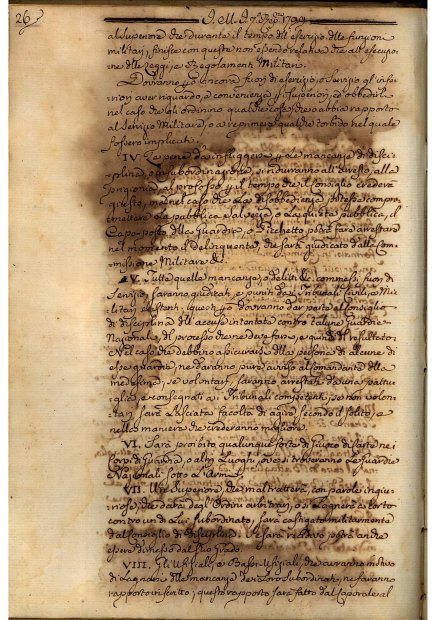 26
al Superiore che durante il tempo dell'esercizio delle funzioni
militari, finisce con queste non essendo relativa che all'esecuzio-
ne delle Leggi, e Regolamenti Militari.
Dovranno però ancora fuori di esercizio, o Servizio gl'infe-
riori aver riguardo, e convenienza pe' Superiori, ed obbedirli
nel caso che gli ordinino qualche cosa, che abbia rapporto
al Servizio Militare, o a reprimere qualche torbido nel quale
fossero implicati.
IV. La pena da infliggersi per le mancanze di disci-
plina, e insubordinazione, si ridurranno all'arresto, alla
prigionia, al profosso per il tempo che il consiglio crederà
giusto, ma nel caso che la disobbedienza potesse compro-
mettere la pubblica salvezza, o la quiete pubblica, il
Capo-posto della Guardia, o Picchetto potrà fare arrestare
nel momento il Delinquente, che sarà giudicato dalla Com-
missione Militare &c.
V. Tutte quelle mancanze, o delitti &c. commessi fuori di
Servizio saranno giudicati, e puniti da' Tribunali Civili, e Mi-
litari esistenti, questi però dovranno dar parte al consiglio
di disciplina dell'accuse intentate contro talune Guardie
Nazionali, del processo che ne deve fare, e quindi il resultato.
Nel caso che debbino assicurarsi della persona di alcune di
esse guardie, ne daranno pure avviso al Comandante della
medesima, se volontari, saranno arrestati da una pattu-
glia, e consegnati a' Tribunali competenti, se non volon-
tari, sarà lasciata facoltà di agire secondo il solito, e
nelle maniere che crederanno migliore.
VI. Sarà proibito qualunque sorta di Giuoco di Carte nei
Corpi di Guardia, o altri Luoghi, ove si troveranno le guardie
Nazionali sotto l'Armi.
VII. Un Superiore, che maltratterà con parole ingiu-
riose, che darà degli Ordini arbitrari, o si lagnerà a torto
contro un di Lui subordinato, sarà castigato militarmente
dal consiglio di disciplina; se sarà recidivo potrà anche
essere dimesso dal suo grado.
VIII. Gli Uffiziali, e Bassi-Uffiziali, che avranno motivo
di lagnarsi delle mancanze de' loro subordinati, ne faranno
rapporto in scritto; questo rapporto sarà fatto dal Caporale al